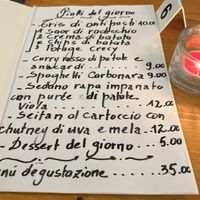 Piatti del giorno
Gris di antipasti 10.00
1 Saor di radicchio
2 Crema di patata
Potage Crecy
Curry rosso di patate e
anacardi ... 9.00
Spaghetti Carbonara 9.00
Sedano rapa impanato
con purè di patate
Viola ... 12.00
Seitan al cartoccio con
chutney di uva e mela ... 12.00
Dessert del giorno ... 5.00
nú degustazione ... 35.00